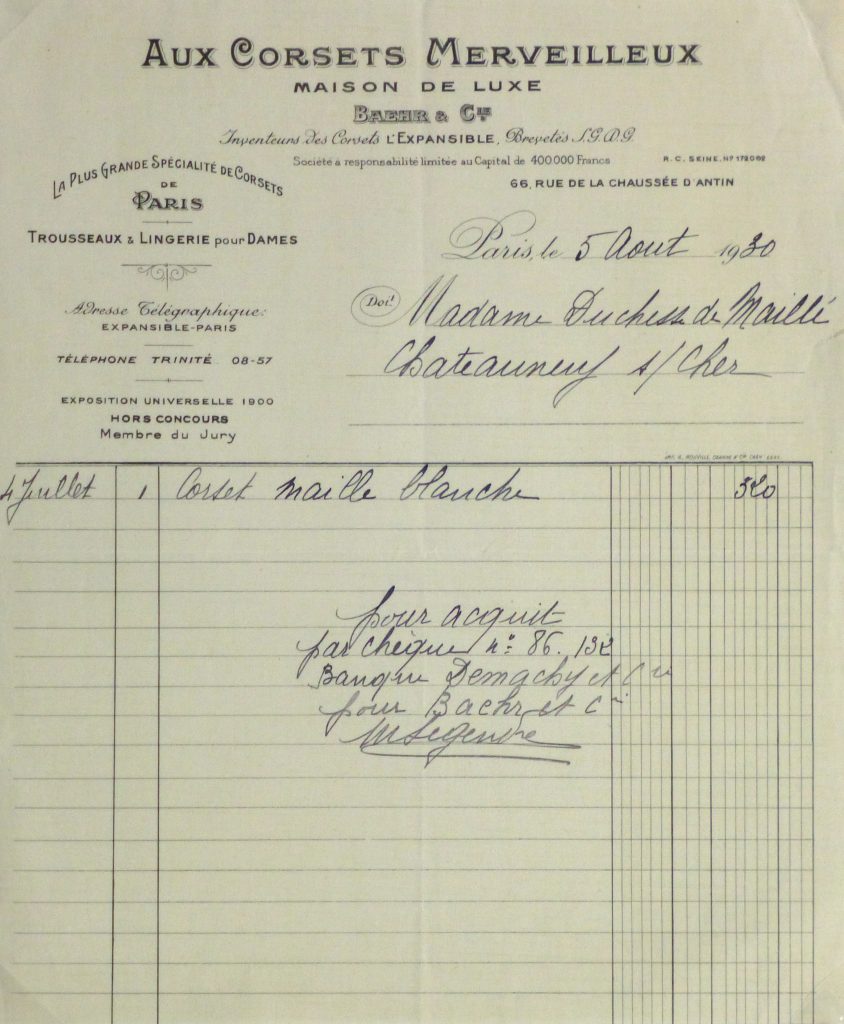 AUX CORSETS MERVEILLEUX
MAISON DE LUXE
BAEHR & CIE
Inventeurs des Corsets L'EXPANSIBLE, Brevetés S.G.D.G.
Société à responsabilité limitée au Capital de 400.000 Francs
R.C. SEINE. Nº 172.092
66, RUE DE LA CHAUSSÉE D'ANTIN
LA PLUS GRANDE SPÉCIALITÉ DE CORSETS
DE
PARIS
TROUSSEAUX & LINGERIE pour DAMES
Adresse Télégraphique:
EXPANSIBLE-PARIS
TÉLÉPHONE TRINITÉ 08-57
EXPOSITION UNIVERSELLE 1900
HORS CONCOURS
Membre du Jury
Paris, le 5 Aout 1930
Doit Madame Duchesse de Maillé
Chateauneuf s/ Cher
4 Juillet 1 Corset maille blanche 320
pour acquit
par chèque nº 86.132
Banque Demachy et Cie
pour Baehr et Cie
M Legendre